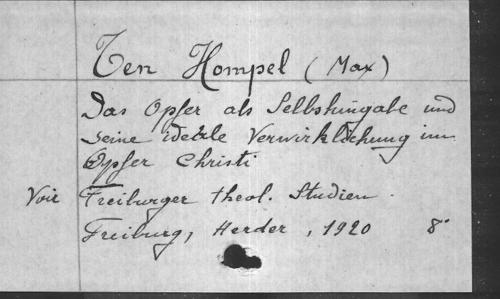 Ten Hompel (Max)
Das Opfer als Selbsthingabe und
seine ideale Verwirklichung im
Opfer Christi
Voir Freiburger theol. Studien.
Freiburg, Herder, 1920 8°